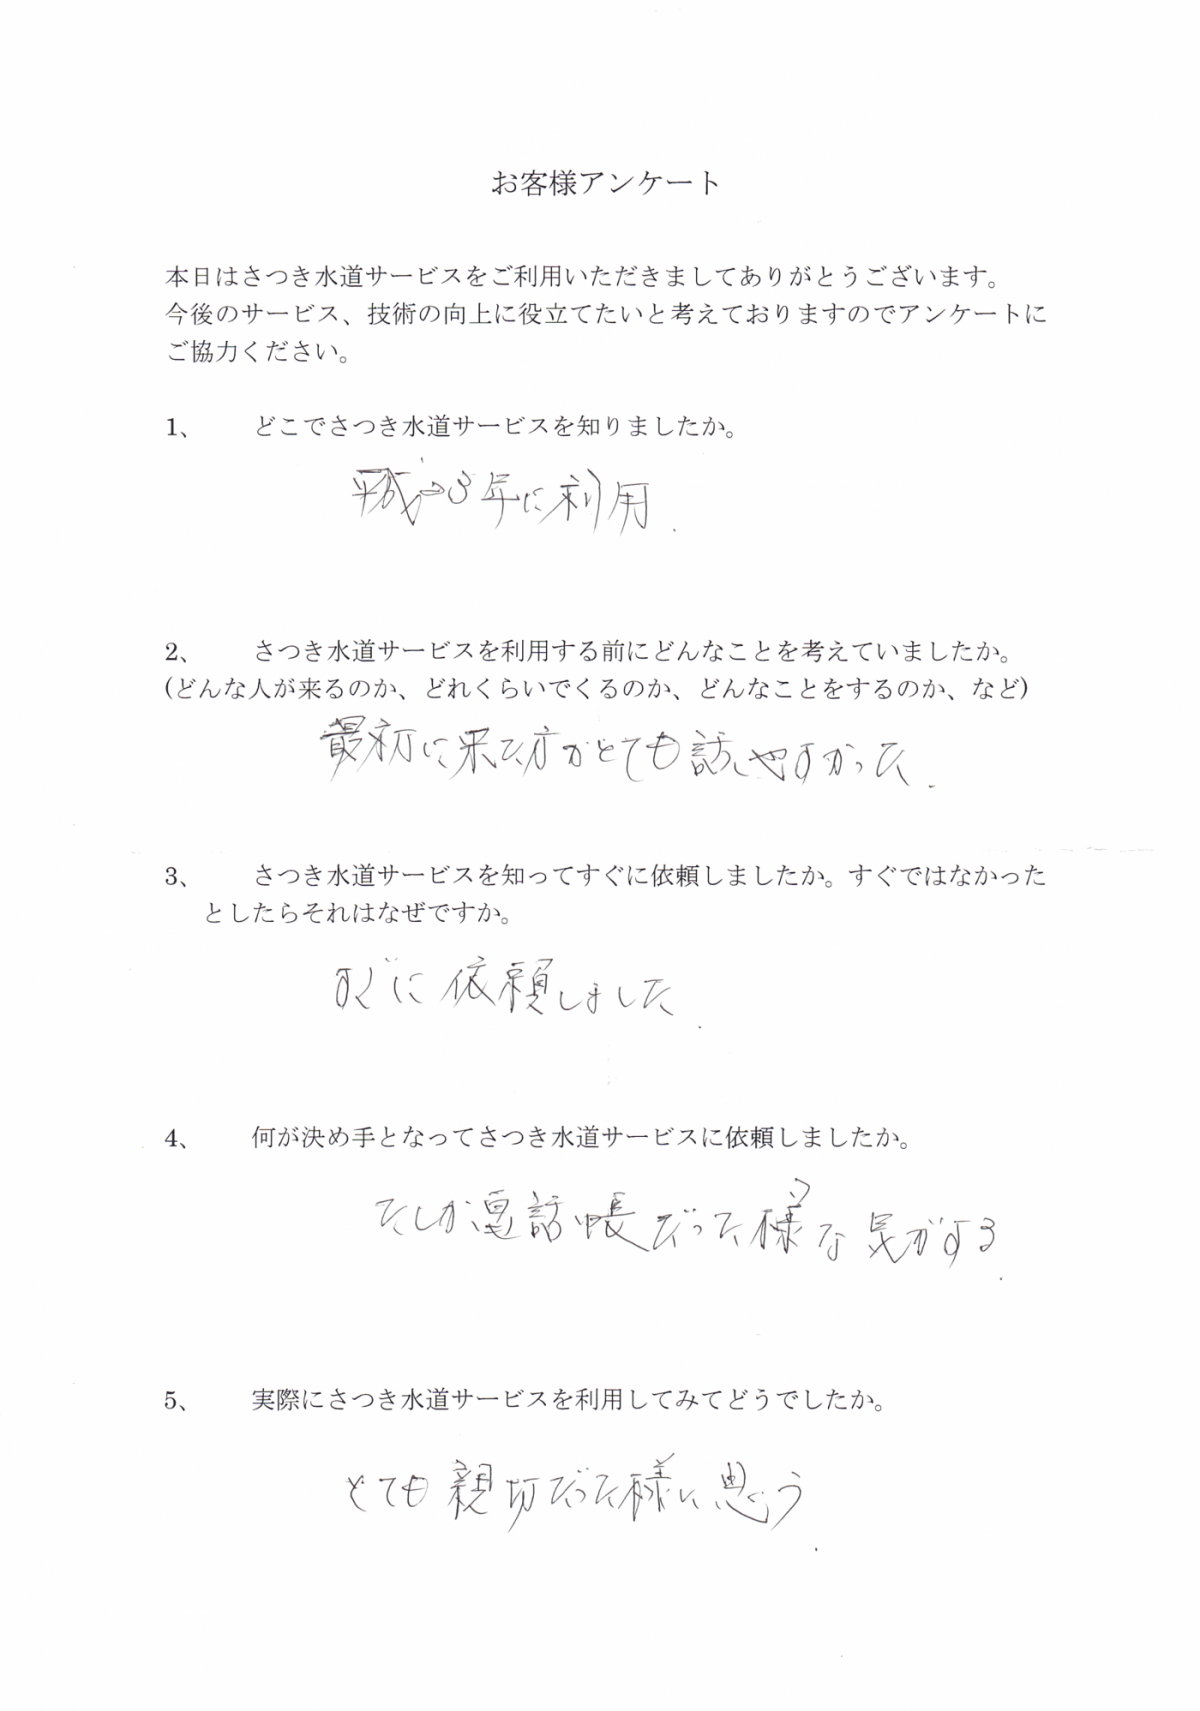 お客様アンケート
本日はさつき水道サービスをご利用いただきましてありがとうございます。
今後のサービス、技術の向上に役立てたいと考えておりますのでアンケートに
ご協力ください。
1、 どこでさつき水道サービスを知りましたか。
平成23年に利用.
2、 さつき水道サービスを利用する前にどんなことを考えていましたか。
(どんな人が来るのか、どれくらいでくるのか、どんなことをするのか、など)
最初に来た方がとても話しやすかった.
3、 さつき水道サービスを知ってすぐに依頼しましたか。すぐではなかった
としたらそれはなぜですか。
すぐに依頼しました.
4、 何が決め手となってさつき水道サービスに依頼しましたか。
たしか電話帳だった様な気がする.
5、 実際にさつき水道サービスを利用してみてどうでしたか。
とても親切だった様に思う.